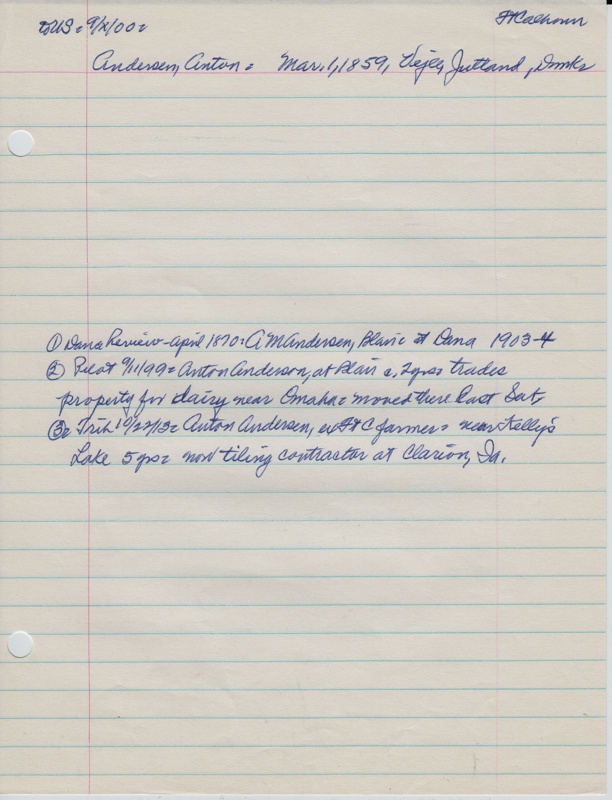 to US = 9/2/00 =
Ft Calhoun
Andersen, Anton = Mar. 1, 1859, Vejle, Jutland, Dmk =
① Dana Review - April 1870 = A M Andersen, Blair = at Dana 1903-4
② Pilot 9/11/99 = Anton Anderson, at Blair c. 2 yrs = trades
property for dairy near Omaha = moved there last Sat,
③ = Trib 10/22/13 = Anton Andersen, ex Ft C farmer = near Kelly's
Lake 5 yrs = now tiling contractor at Clarion, Ia.